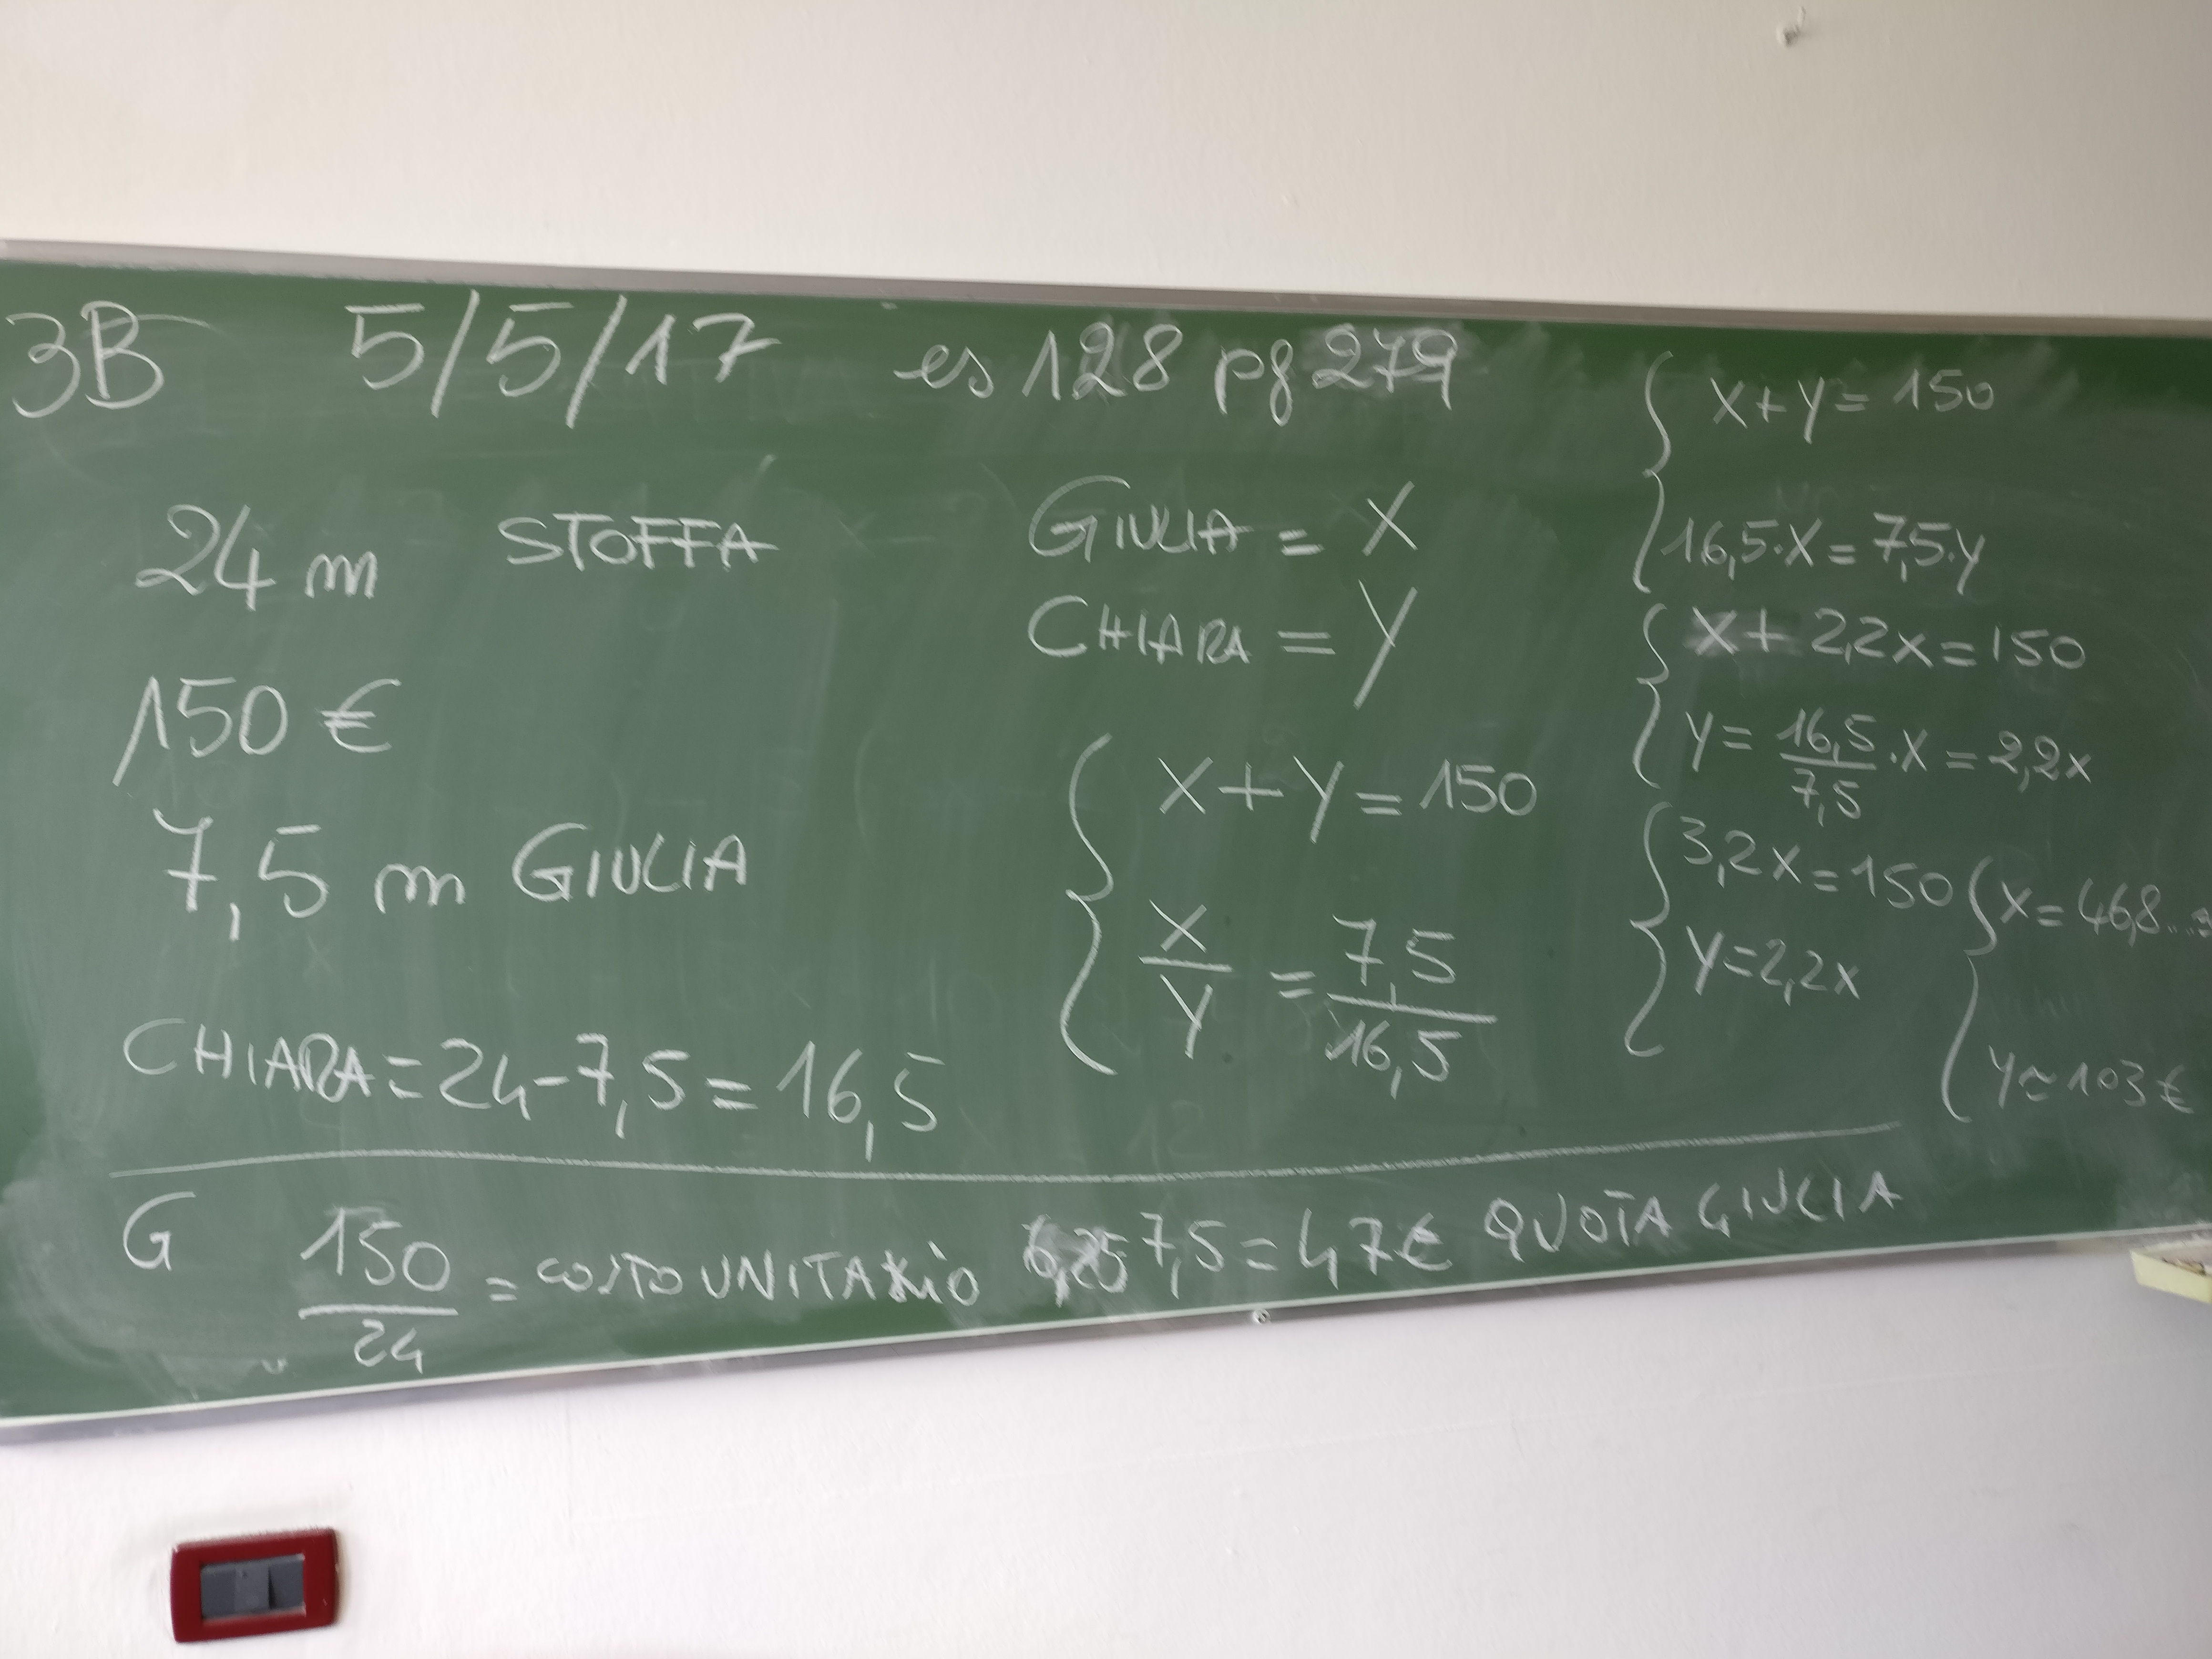 3B 5/5/17 es 128 pg 279
24 m STOFFA
150 €
7,5 m GIULIA
CHIARA = 24 - 7,5 = 16,5
GIULIA = X
CHIARA = Y
X + Y = 150
X/Y = 7,5/16,5
X + Y = 150
16,5·X = 7,5·Y
X + 2,2X = 150
Y = 16,5/7,5 · X = 2,2X
3,2X = 150
Y = 2,2X
X = 46,8...
Y ≈ 103 €
G 150/24 = COSTO UNITARIO 6,25 7,5 = 47 € QUOTA GIULIA